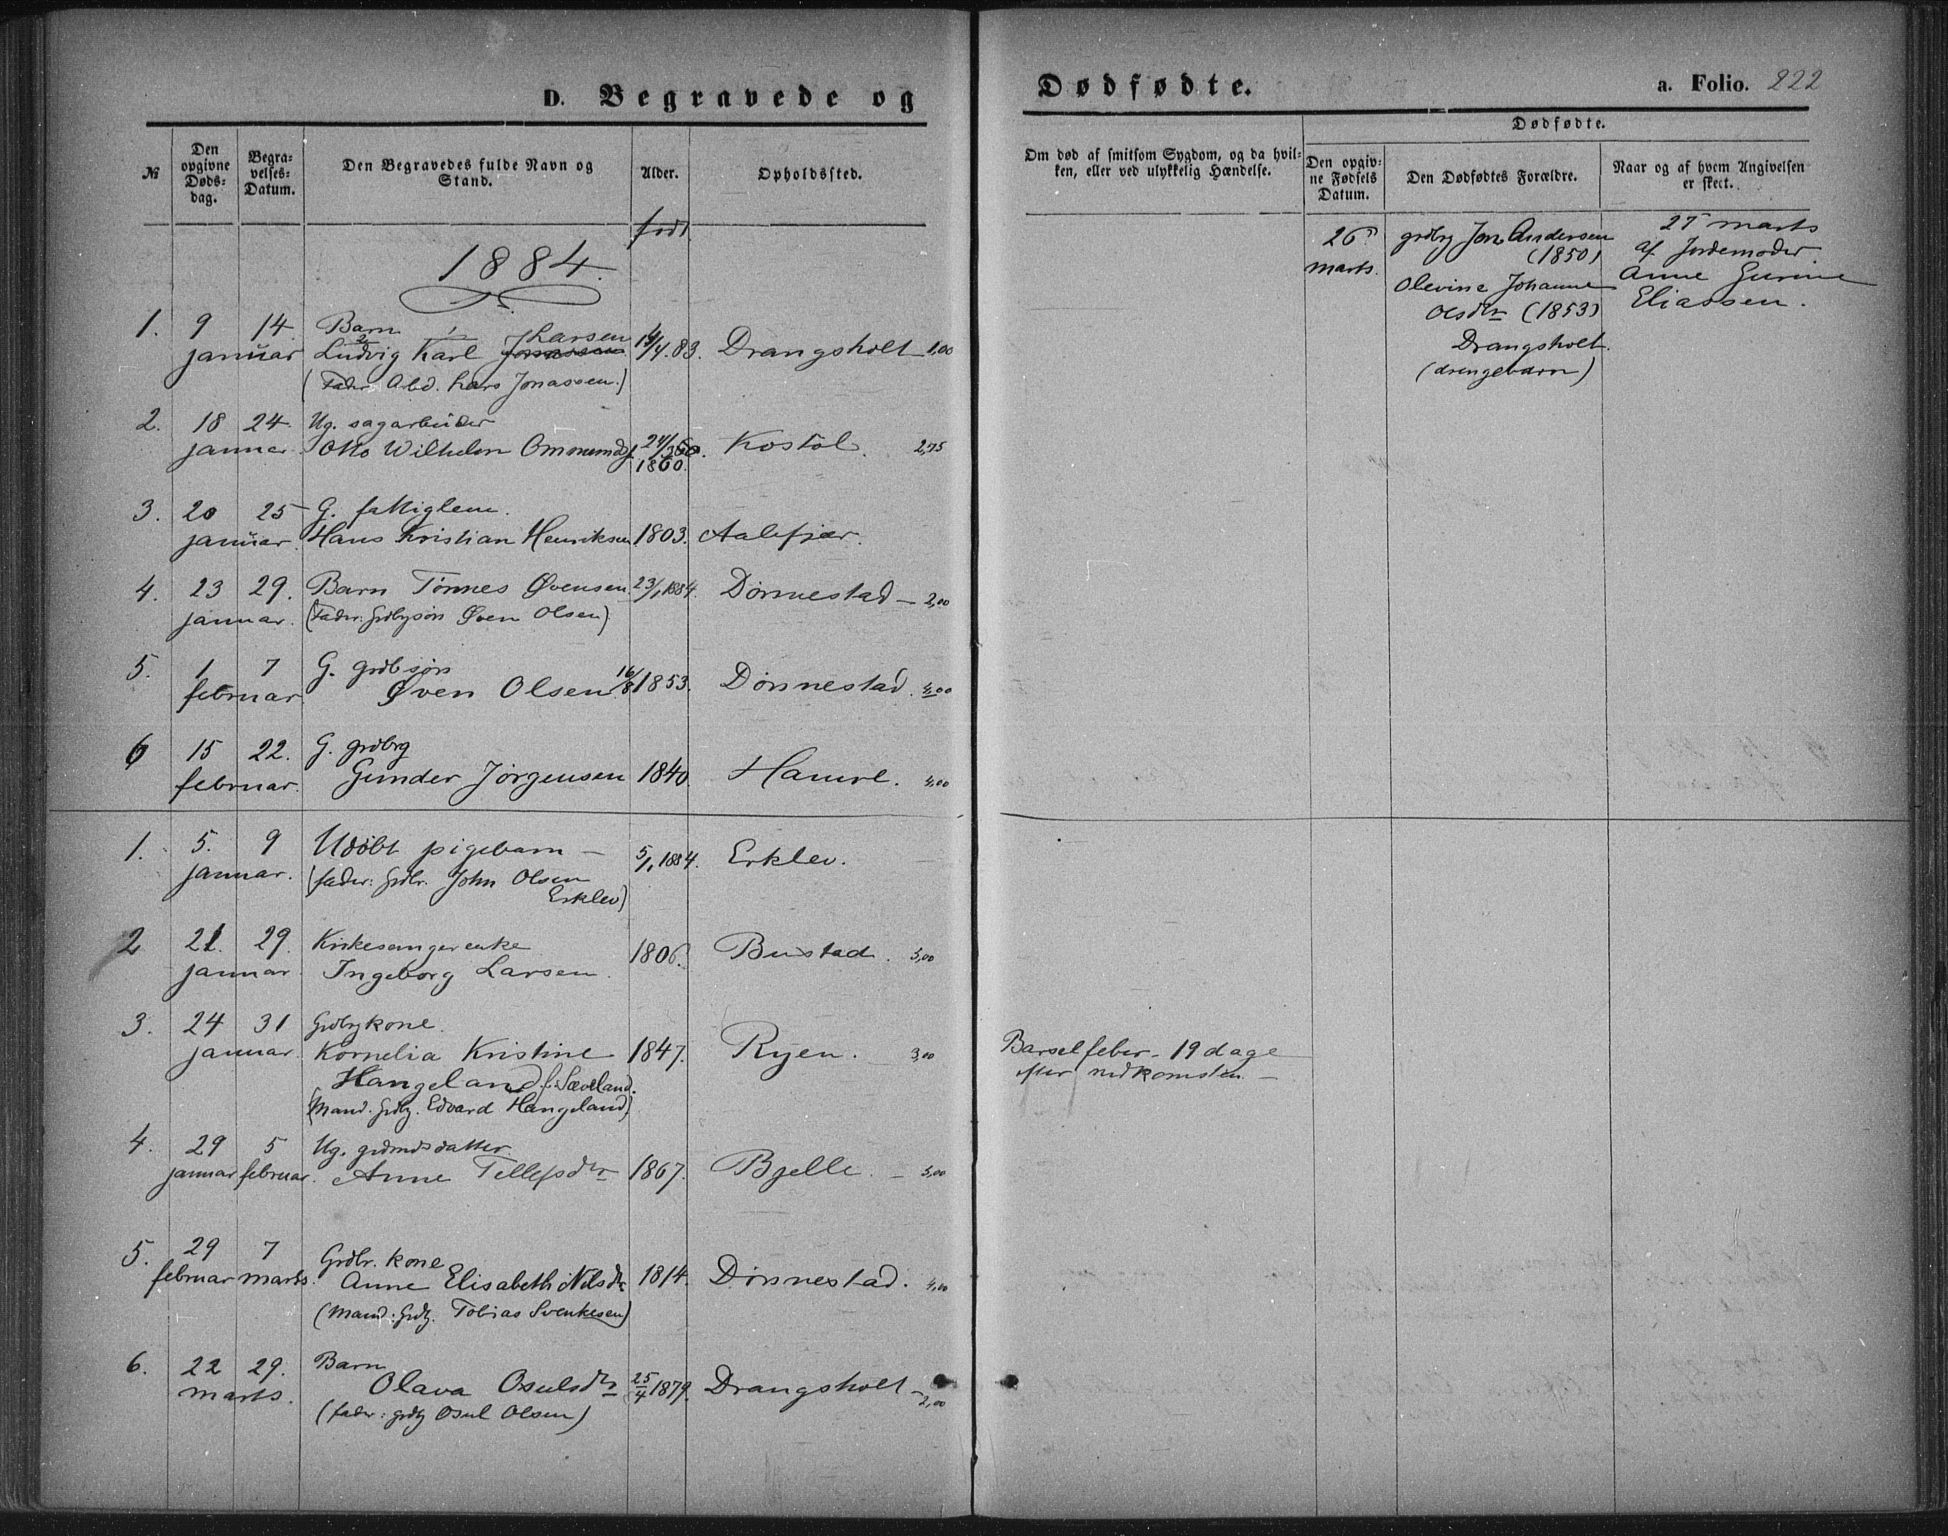 D. Begravede og
Dødfødte.
a. Folio. 222
№
Den opgivne Døds-dag.
Begra-velses-Datum.
Den Begravedes fulde Navn og Stand.
Alder.
Opholdssted.
Om død af smitsom Sygdom, og da hvil-
ken, eller ved ulykkelig Hændelse.
Dødfødte.
Den opgiv-ne Fødsels Datum.
Den Dødfødtes Forældre.
Naar og af hvem Angivelsen er skeet.
født
1884.
1. 9 januar 14. Barn
Ludvig Karl Larsen 14/4.83. Drangsholt 1,00
(Fader Arbd. Lars Jonassen.)
2. 18 januar 24. Ug. sagarbeider
Otto Wilhelm 1860. Kostøl. 2,75
3. 20 januar 25 G. fattiglem.
Hans Kristian Henriksen 1803. Aalefjær.
4. 23 januar. 29. Barn Tønnes Øvensen 23/1 1884. Dønnestad – 2,00
(Fader: Grdbrsøn Øven Olsen)
5. 1 februar 7 G. grdbsøn
Øven Olsen 16/8 1853. Dønnestad. 4,00
6 15 februar. 22. G. grdbrg
Gunder Jørgensen 1840. Hamre. 4,00
1. 5. januar. 9 Udøbt pigebarn – 5/1 1884. Erklev.
(fader: Grdbr. John Olsen
Erklev)
2 21. januar 29. Kirkesangerenke
Ingeborg Larsen. 1806. Bustad. 3,00
3. 24 januar. 31 Grdbrkone.
Kornelia Kristine 1847. Ryen. 3,00
Hangeland f. Sæveland.
(Mand. Grdbg. Edvard Hangeland)
4. 29 januar 5 februar. Ug. grdmdsdatter
Anne Tellefsdtr 1867. Bjelle. – 3,00
5. 29 februar 7 marts. Grdbr. kone
Anne Elisabeth Nilsdtr 1814. Dønnestad. 4,00
(Mand: Grdbg. Tobias Svenkesen)
6. 22 marts. 29. Barn
Olava Osulsdtr 25/4 1879. Drangsholt – 2,00
(fader: grdbg Osul Olsen)
26 marts.
grdbrg Jens Andersen
(1850)
Olevine Johanne
Olsdtr (1853)
Drangsholt.
(drengebarn)
27 marts
af Jordemoder
Anne Gurine
Eliassen.
Barselfeber – 19 dage
efter nedkomsten. –